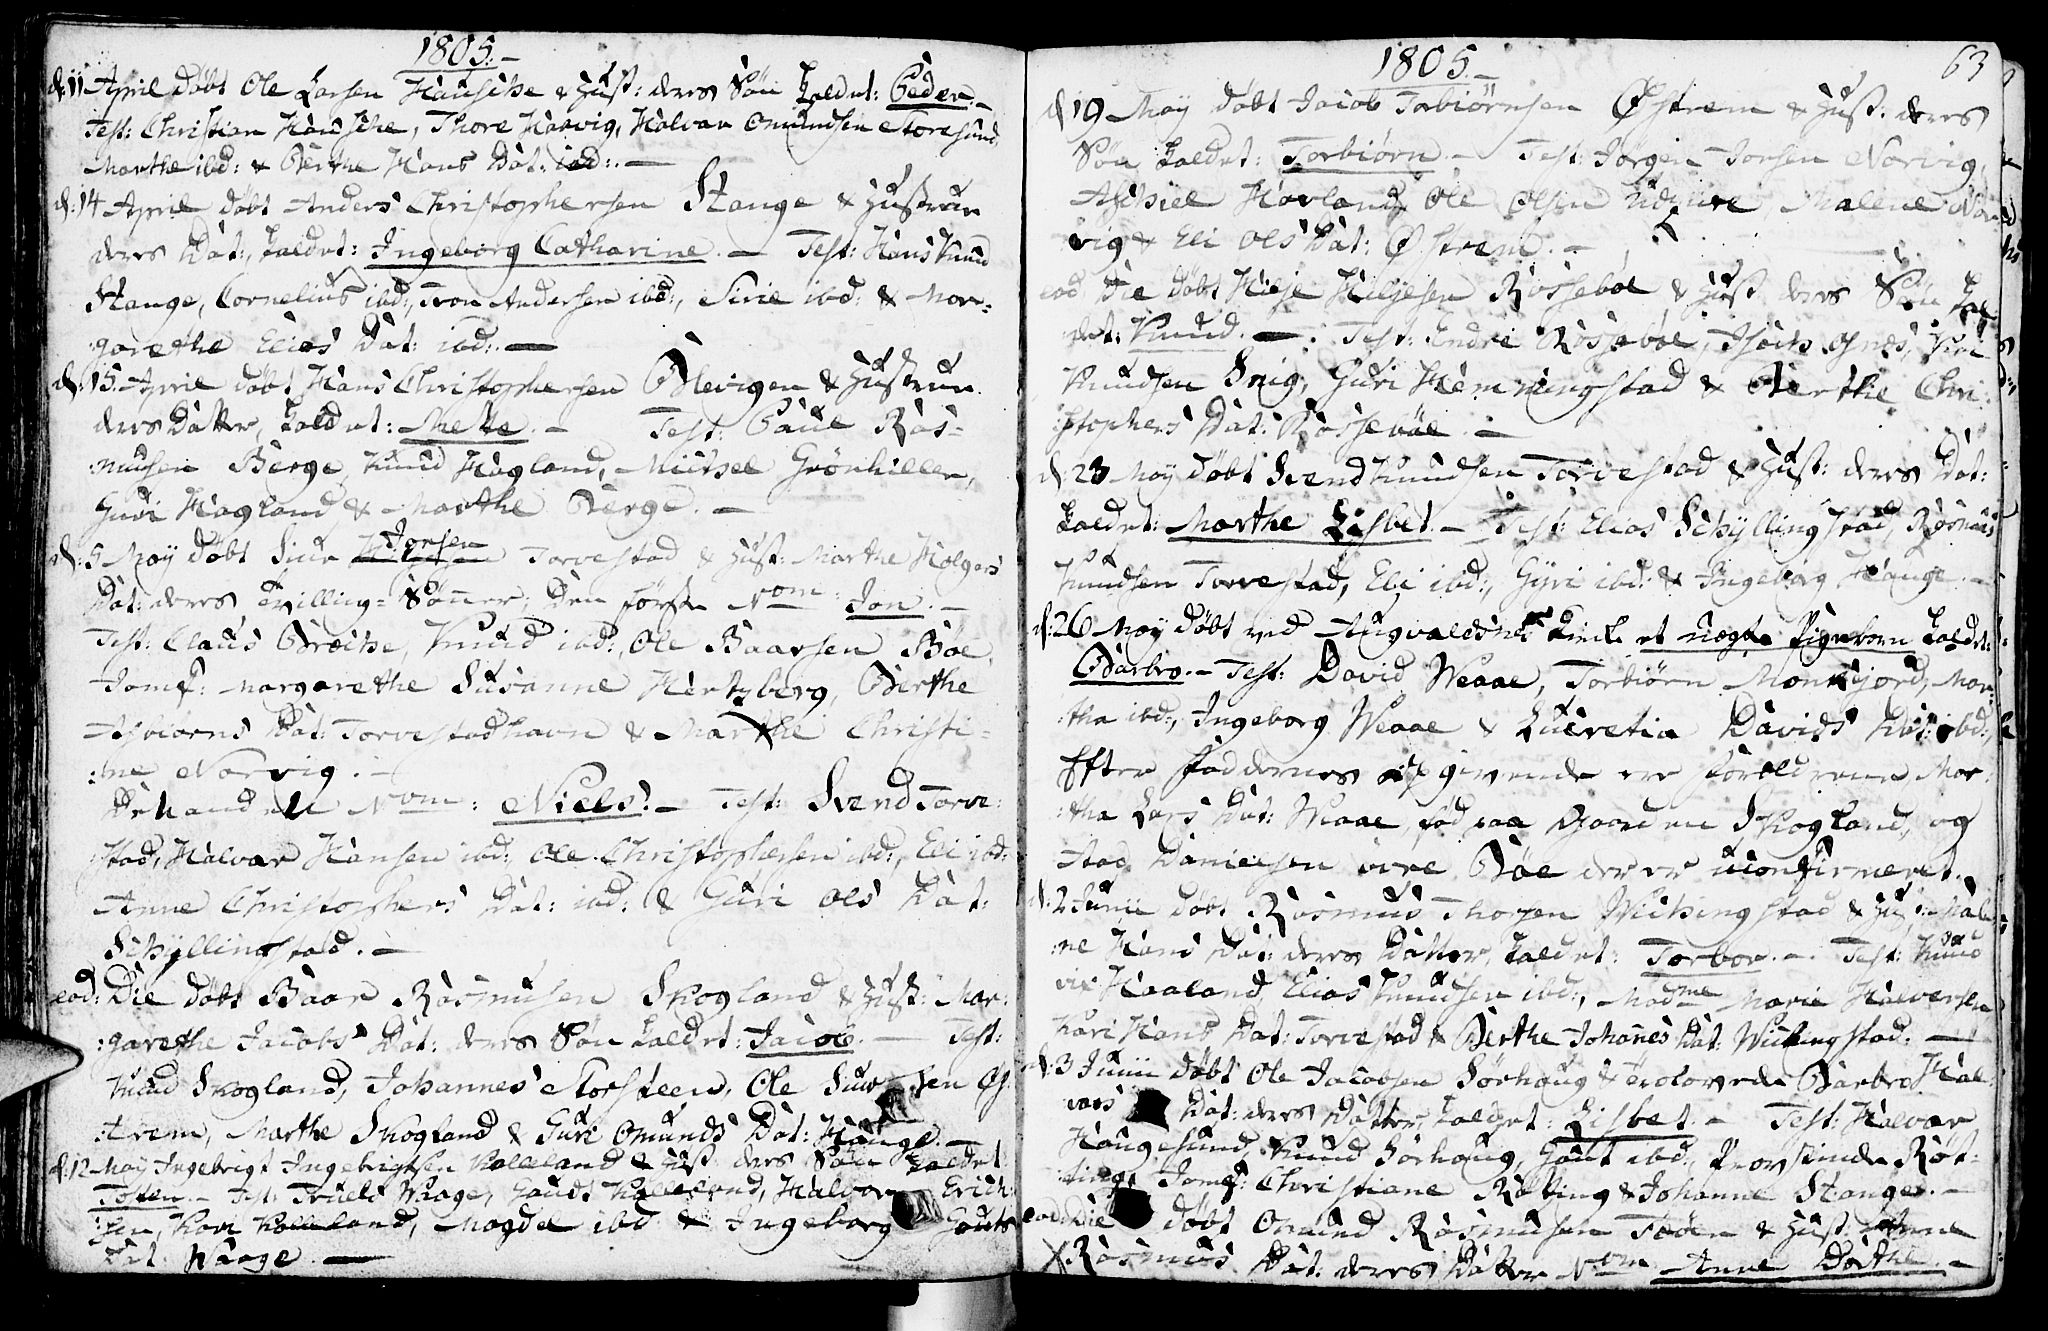 1805.-
d: 11 April døbt Ole Larsen Hausche & Hust: deres Søn kaldet: Peder.-
Test: Christian Hausche, Thore Hasvig, Halvar Omundsen Storesund,
Marthe ibd: & Berthe Hans Dat: ibd:. —
d: 14 April døbt Anders Christophersen Stange & Hustrue
deres Dat: kaldet: Ingeborg Catharine. — Test: Hans Knud
Stange, Cornelius ibd:, Tron Andersen ibd:, Sirie ibd: & Mar=
garethe Elias Dat: ibd:. —
d: 15. April døbt Hans Christophersen Blevigen & Hustrue
deres Datter, kaldet: Mette. - Test: Paul Ras=
mussen Berge, Knud Hagland, Michel Grönhillen,
Guri Hagland & Marthe Berge. —
d: 5 May døbt Siur Jonsen Torvestad & Hust: Marthe Holgers
Dat: deres Tvilling= Sønner; Den første Nom: Jon. —
Test: Claus Bræche, Knud ibd:, Ole Baarsen Bøe,
Jomf: Margarethe Susanne Hertzberg, Berthe
Asbiørns Dat: Torvestadhavn & Marthe Christi=
:ne Norvig. —
Den anden Nom: Niels. — Test: Svend Torve:
stad, Halvar Hansen ibd: Ole Christophersen ibd:, Eli ibd:
Anne Christophers Dat: ibd: & Guri Ols Dat:
Schyllingstad. —
eod: Die døbt Baar Rasmusen Skogland & Hust: Mar:
:garethe Jacobs Dat: deres Søn kaldet: Jacob. — Test:
Knud Skogland, Johannes Storsteen, Ole Siursen Øs
:trem, Marthe Skogland & Guri Omunds Dat: Hauge. —
d: 12 May Ingebrigt Ingebrigtsen Kalleland & Hust: deres Søn kaldet
Tosten. - Test: Truels Waage, Gaudt Kalleland, Halvor Erich:
:sen, Kari Kalleland, Magdel ibd: & Ingeborg Gauts
Dat: Waage. —
1805. -
63
d 19 May døbt Jacob Torbiørnsen Østrem & Hust: deres
Søn kaldet: Torbiørn. - Test: Jørgen Jonsen Norvig,
Aschiel Havland, Ole Olsen Malene Nor
vig & Eli Ols Dat: Østrem. -
eod Die døbt Hilje Hiljesen Røssebøe & Hust deres Søn kal
det: Knud. — Test: Endre Røssebøe,
Knudsen Snig, Guri Hemmingstad & Berthe Chri:
:stophers Dat: Røssebøe. —
d: 23 May døbt Svend Knudsen Torvestad & Hust: deres Dat:
kaldet: Marthe Lisbet. - Test: Elias Schyllingstad, Rasmus
Knudsen Torvestad, Eli ibd:, Gyri ibd: & Ingeborg Hauge. —
d: 26 May døbt ved Augvaldsnes Kirke et uægte Pigebarn kaldet:
Barbro. - Test: David Weaae, Torbiørn Monkejord, Mar:
:tha ibd:, Ingeborg Weaae & Lucretia Davids Dat: ibd:,
Efter Faddernes opgivende ere Forældrene, Mar:
:tha Lars Dat: Weaae, fød paa Gaarden Skogland, og
Aad Danielsen øvre Bøe der er uconfirmeret.
d: 2 Junii døbt Rasmus Thorsen Wichingstad & Hust: Male
:ne Hans Dat: deres Datter kaldet: Torbor. - Test: Knud
vix Haaland, Elias Knudsen ibd:, Madme Marie Halversen
Kari Hans Dat: Torvestad & Berthe Johanes Dat: Wichingstad. —
d: 3 Junii døbt Ole Jacobsen Sørhaug & Troelovede Barbro Hal:
vars Dat: deres Datter kaldet: Lisbet. - Test: Halvar
Haugesund, Knud Sørhaug, Gaut ibd:, Røt:
:ting, Jomf: Christiane Røtting & Johanne Stange. —
eod: Die døbt Omund Rasmusen Føøen & Hust: Anne
X Rasmus Dat: deres Datter Nom Anne Dorthe. —